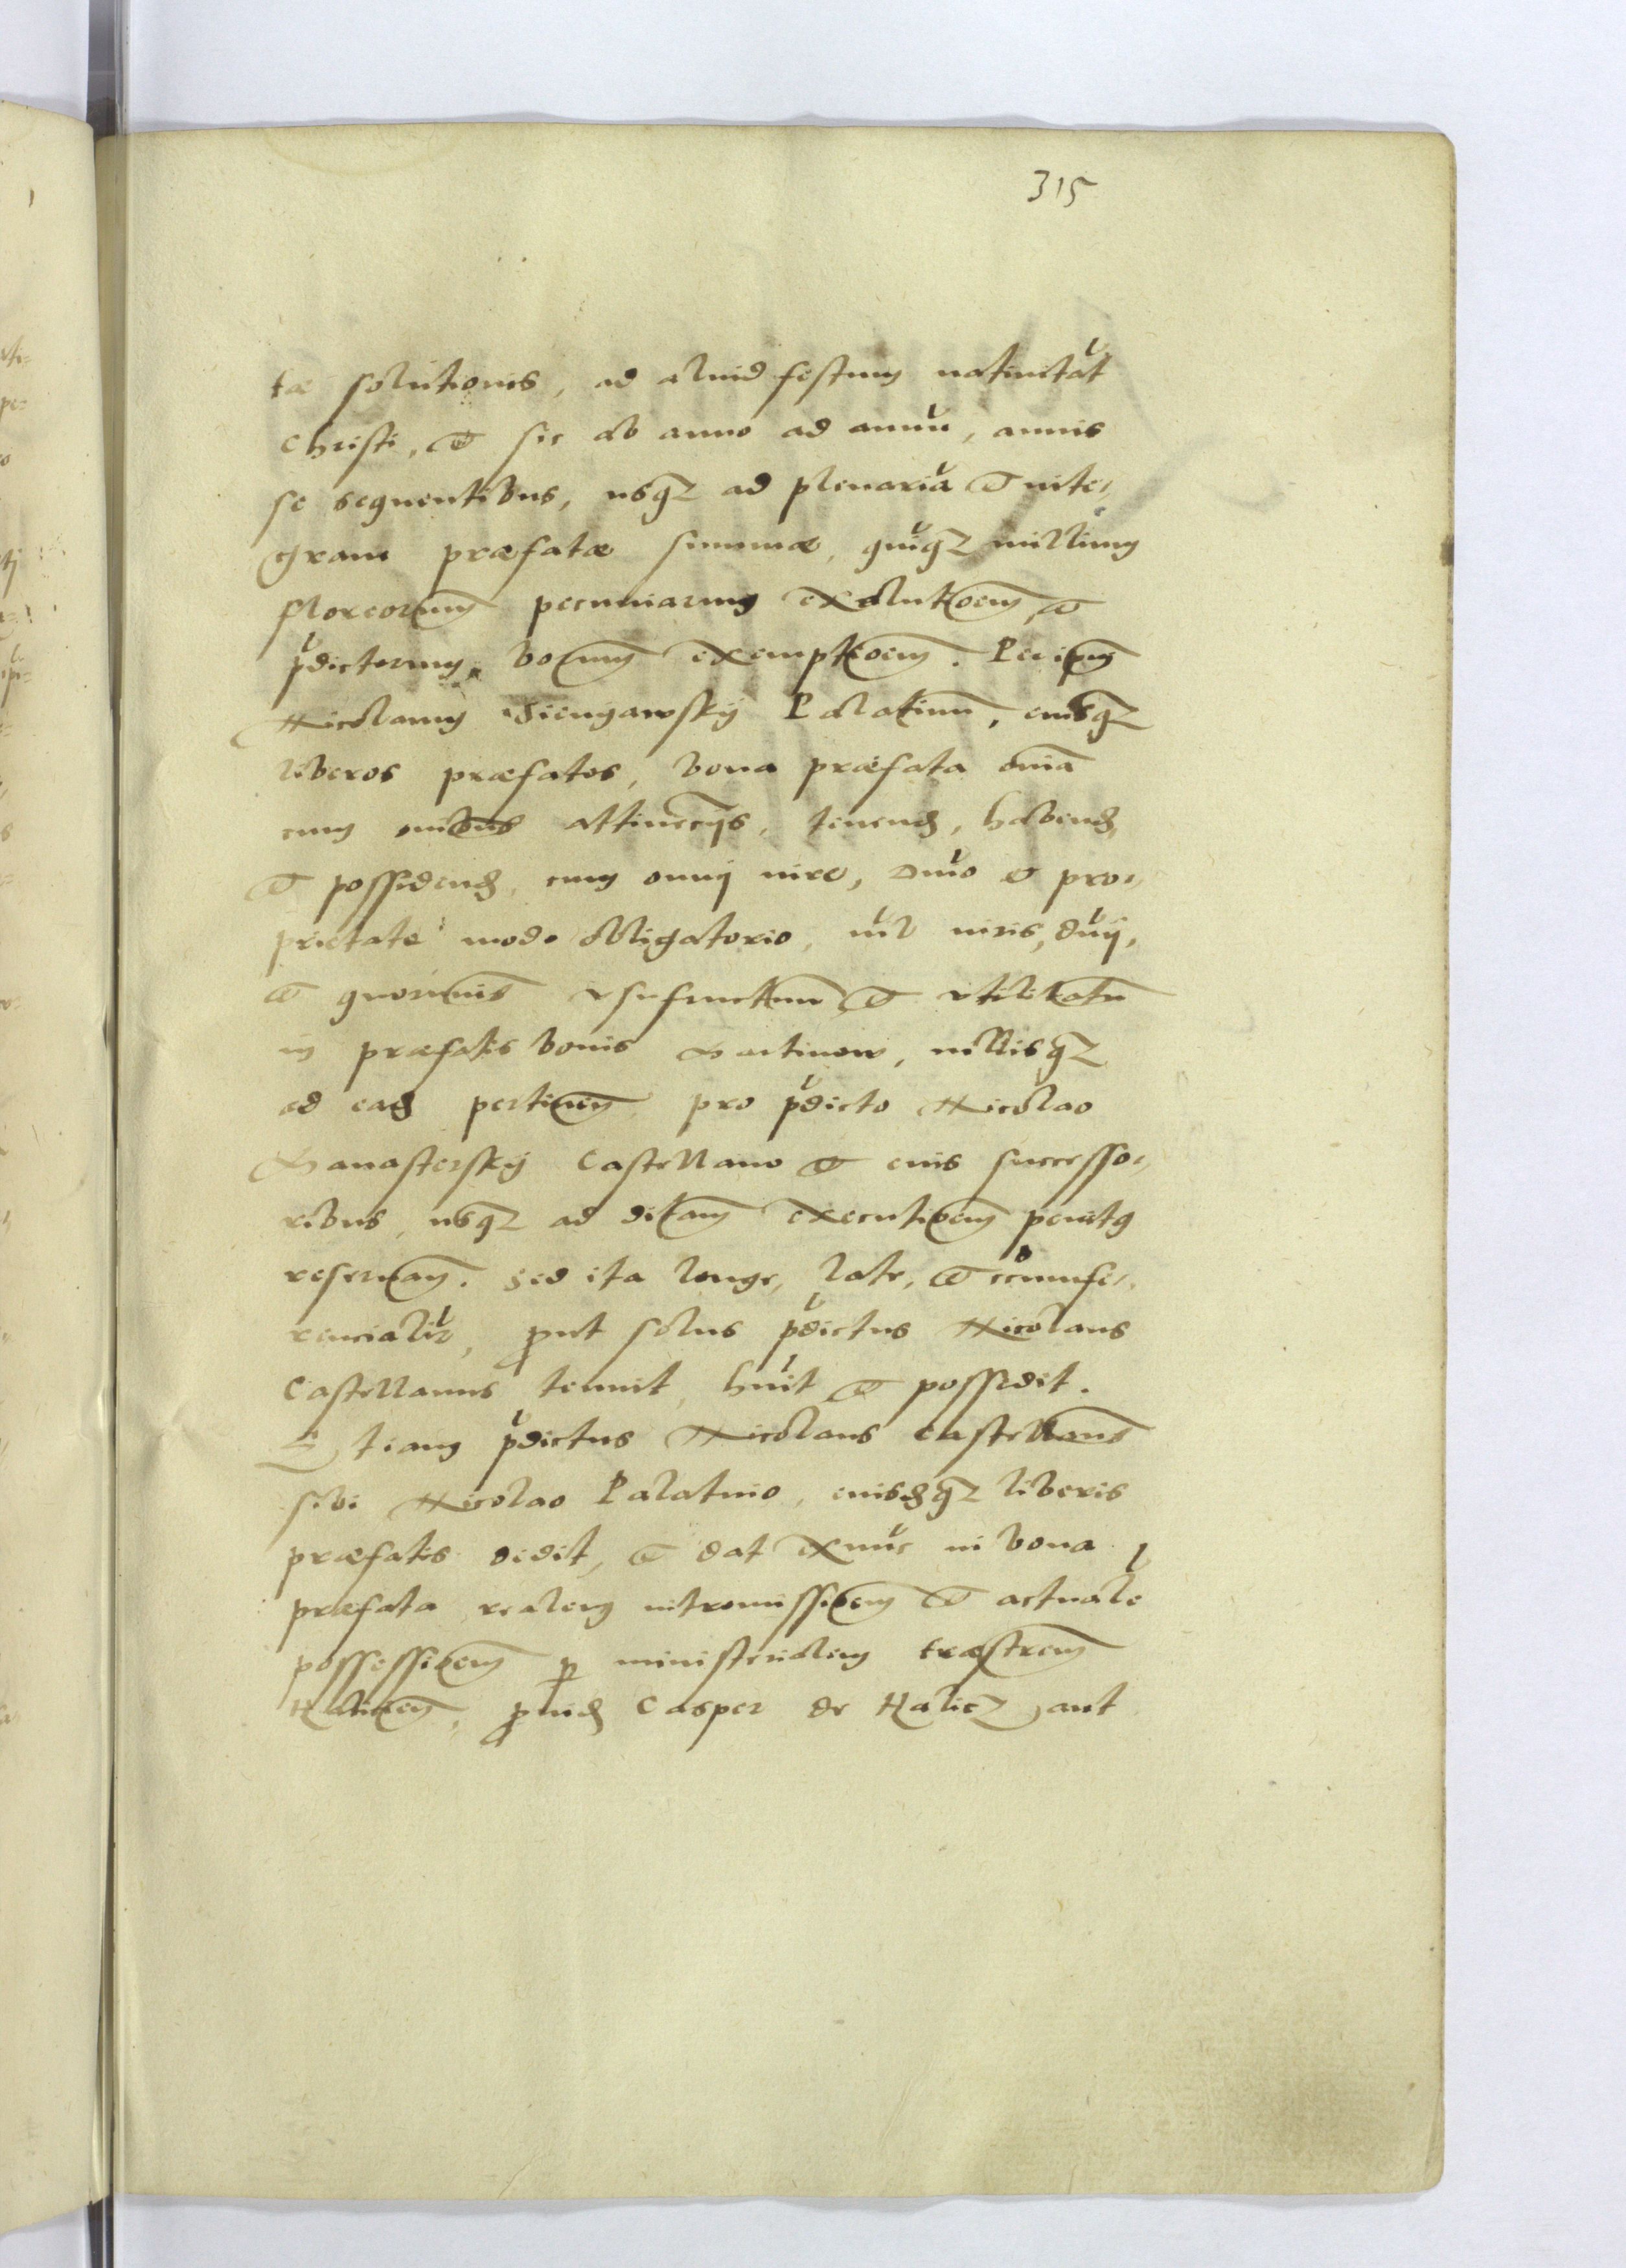 315
tæ solutionis, ad aliud festum nativitat
Christi, et sic ab anno ad annu, annis
se sequentibus, usq₃ ad plenaria et inte-
gram præfatæ summæ, quiq₃ millium
floreorum pecuniarum exolutioem, et
pdictorum bonorum exemptioem. Per ipm
Nicolaum Sienyawskÿ Palatinum, eiusq₃
liberos præfatos, bona præfata omia
cum omibus attinecijs, tenend, habend
et possidend, cum omnj iure, dnio et pro-
prietate modo obligatorio, nil iuris, dnij,
et quoruis vsufructum et vtilitatu
in præfatis bonis Martinow, villisq₃
ad ead pertinen, pro pdicto Nicolao
Banasterskÿ Castellano et eius successo-
ribus, usq₃ ad dictam executioem penitus
reseruan. Sed ita longe, late, et circumfe-
rencialiter, prout solus pdictus Nicolaus
Castellanus tenuit, huit et possedit.
Etiam pdictus Nicolaus Castellanus
sibi Nicolao Palatino, eiusdq₃ liberis
præfatis dedit, et dat exnuc in bona
præfata realem intromissioem et actuale
possessioem p ministerialem træstrem
Halicien, prouid Casper de Halicz aut